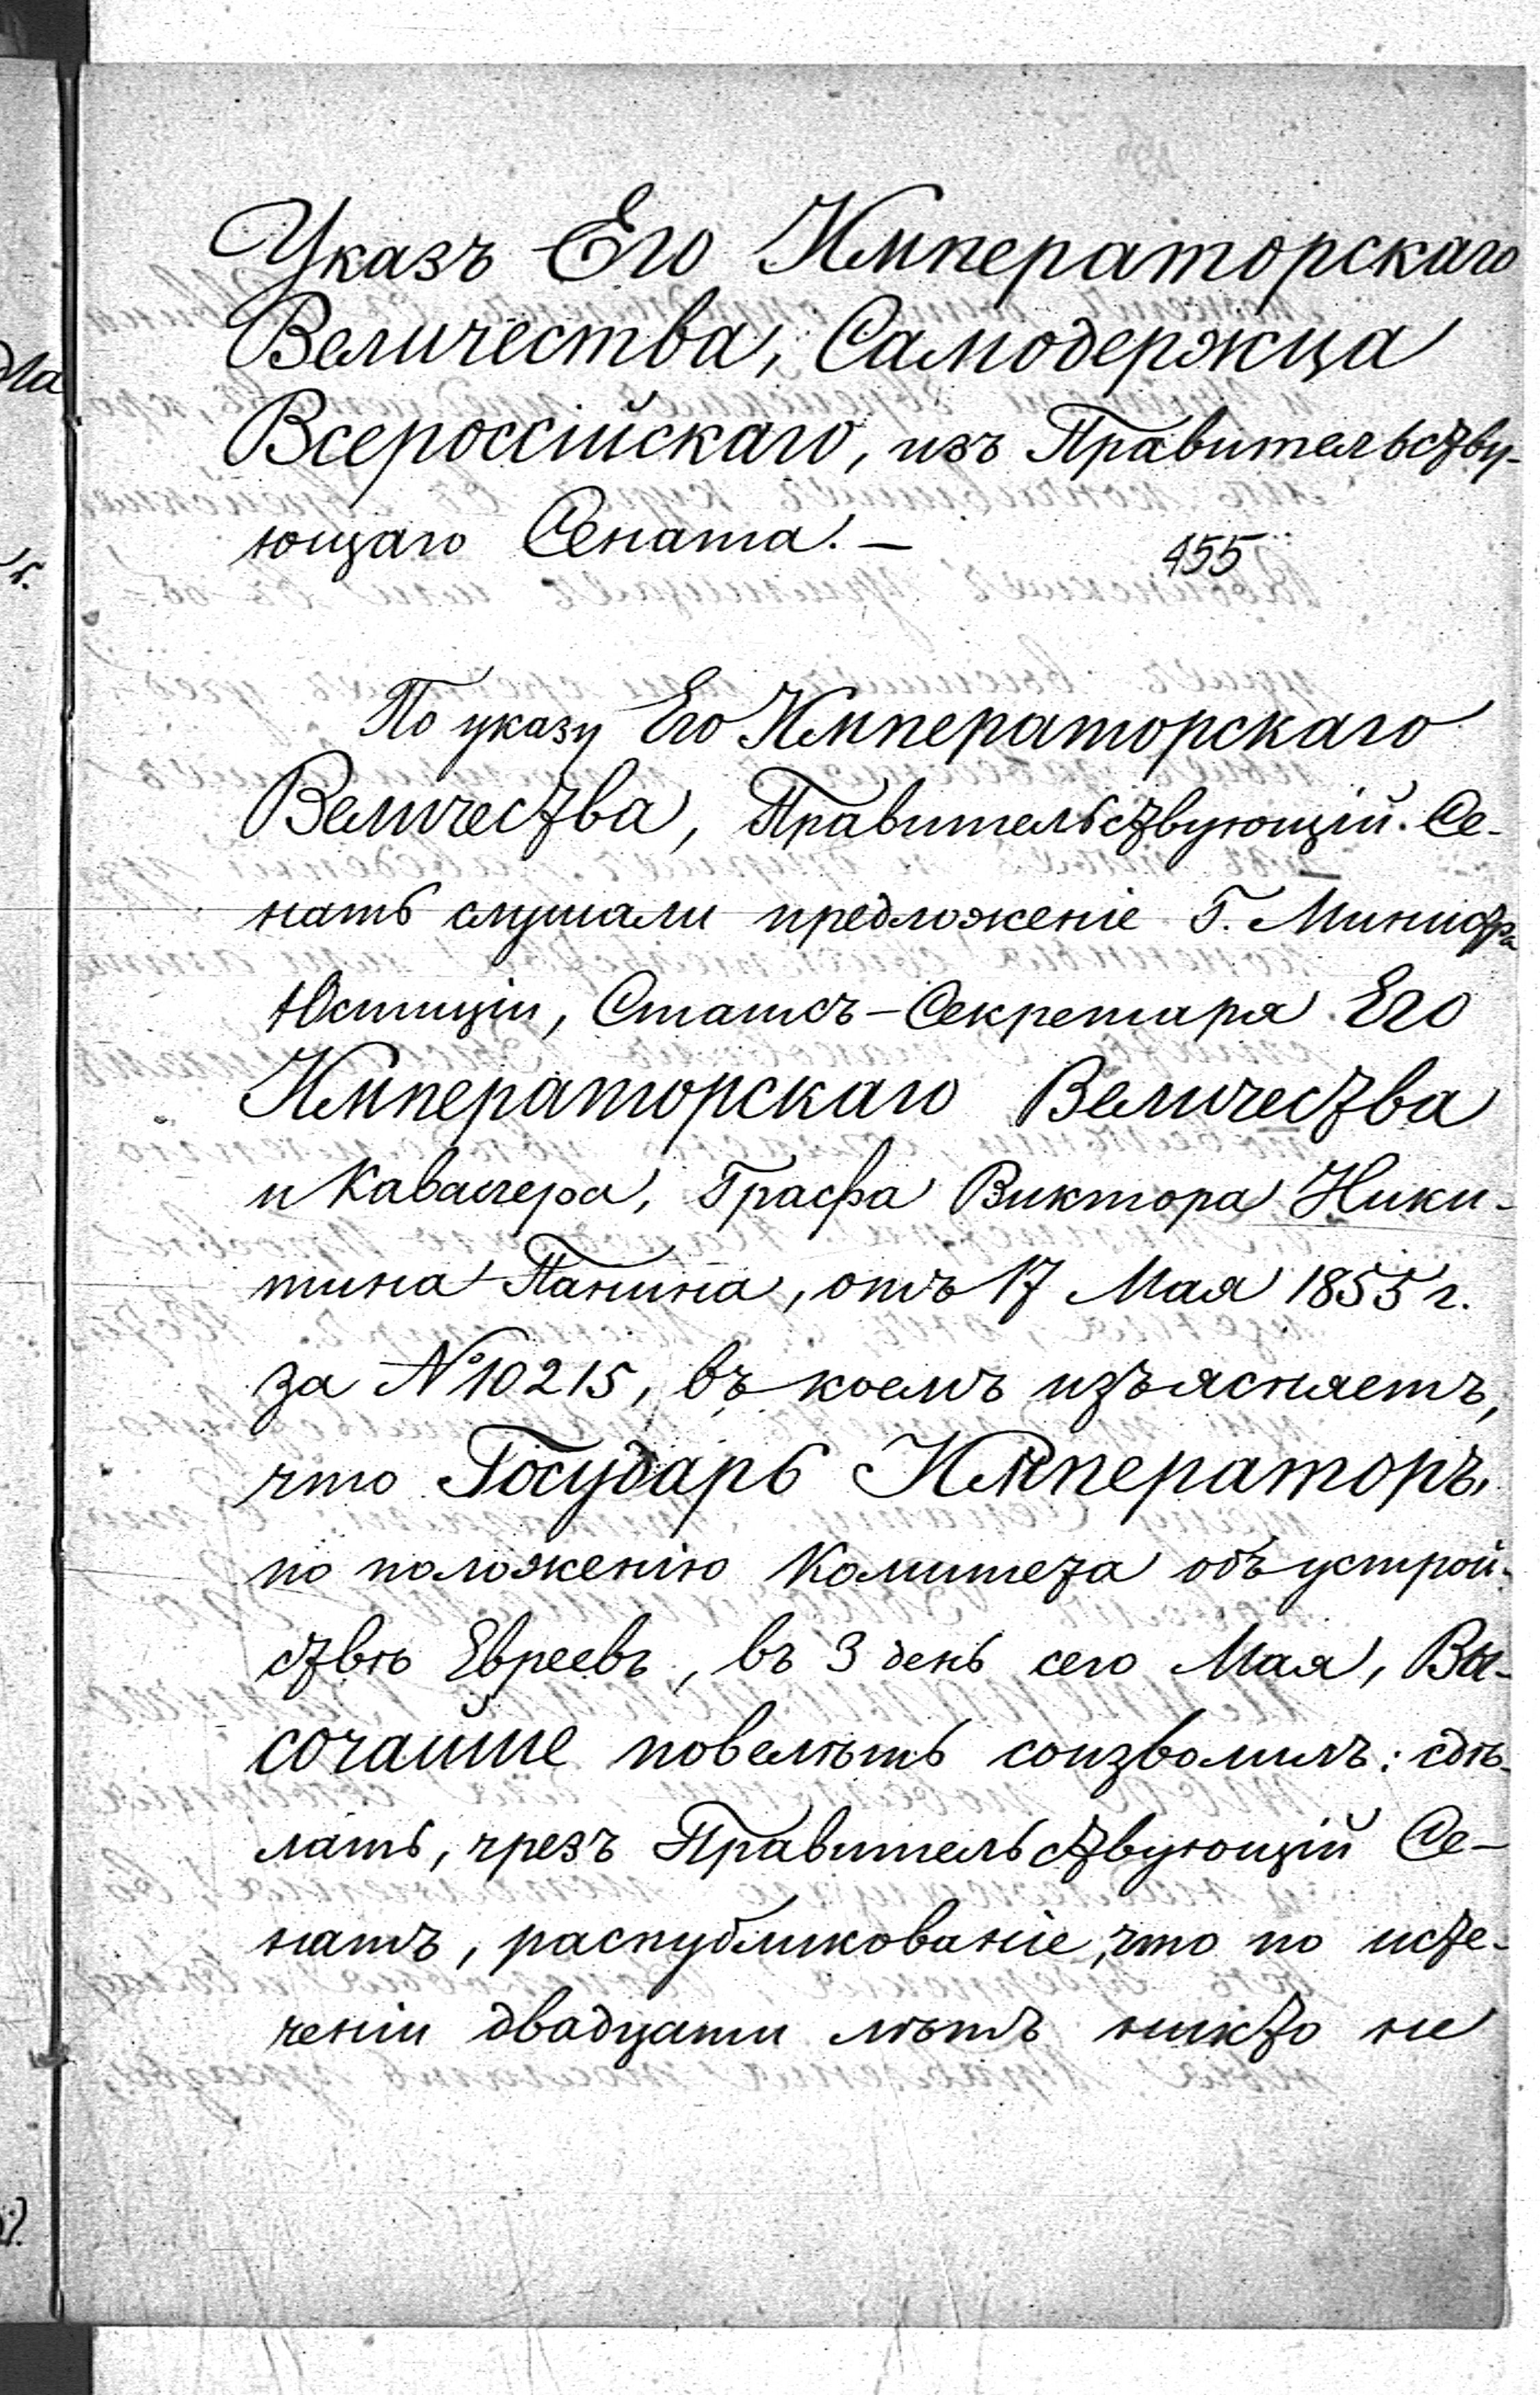 Указъ Его Императорскаго
Величества, Самодержца
Всероссійскаго, изъ Правительству-
ющаго Сената. —
455
По указу Его Императорскаго
Величества, Правительствующій Се-
натъ слушали предложеніе Г. Министра
Юстиціи, Статсъ-Секретаря Его
Императорскаго Величества
и Кавалера, Графа Виктора Ники-
тина Панина, отъ 17 Мая 1855 г.
за № 10215, въ коемъ изъясняетъ,
что Государь Императоръ,
по положенію Комитета объ устрой-
ствѣ Евреевъ, въ 3 день сего Мая, Вы-
сочайше повелѣть соизволилъ: сдѣ-
лать, чрезъ Правительствующій Се-
натъ, распубликованіе, что по исте-
ченіи двадцати лѣтъ никто не